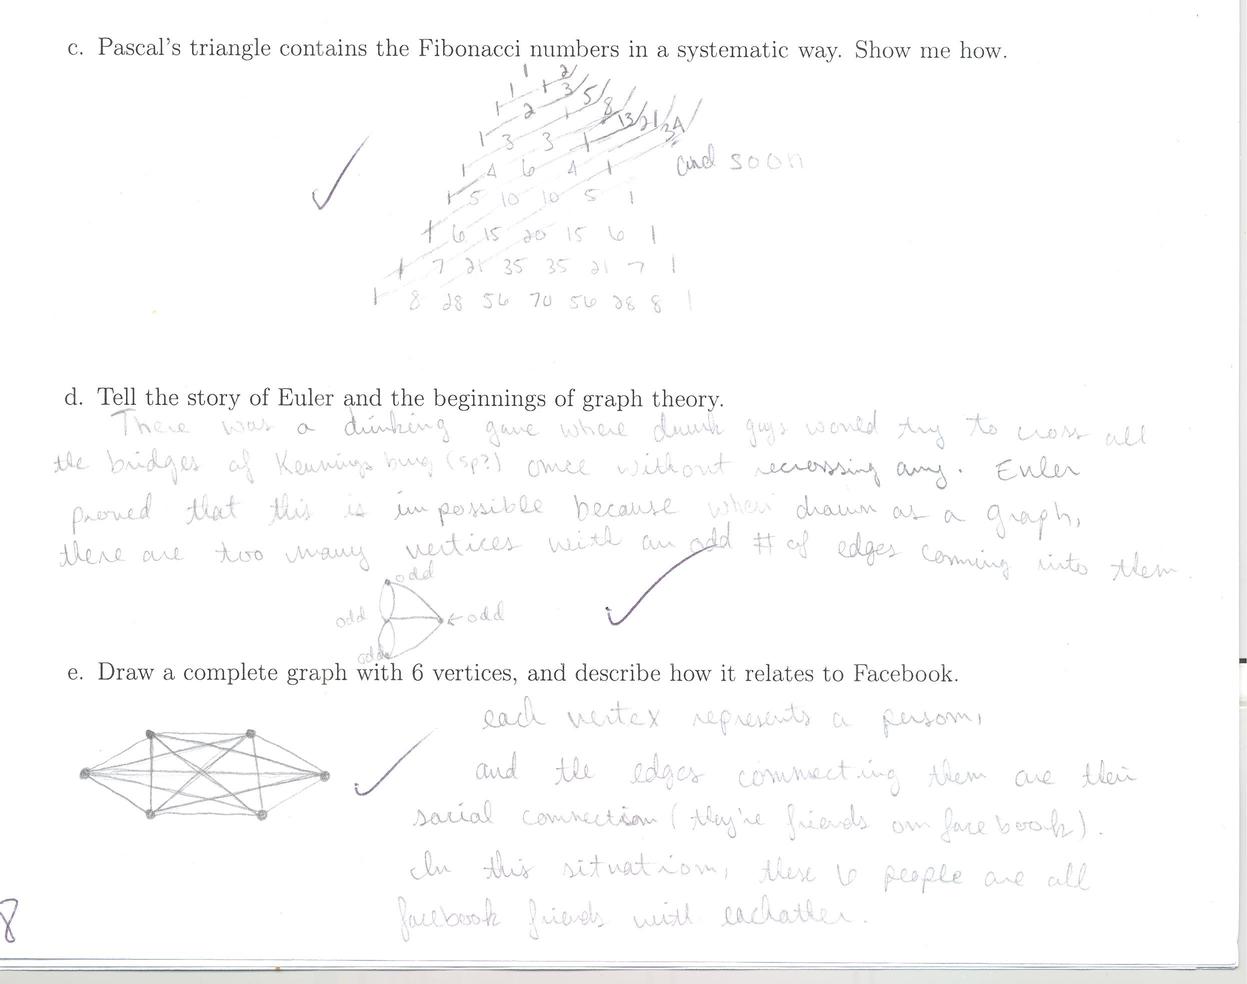 c. Pascal's triangle contains the Fibonacci numbers in a systematic way. Show me how.
1 2
1 1 3 5 8 13 21 34
1 2 1
1 3 3 1
1 4 6 4 1 and so on
1 5 10 10 5 1
1 6 15 20 15 6 1
1 7 21 35 35 21 7 1
1 8 28 56 70 56 28 8 1
d. Tell the story of Euler and the beginnings of graph theory.
There was a drinking game where drunk guys would try to cross all
the bridges of Kennings burg (sp?) once without recrossing any. Euler
proved that this is impossible because when drawn as a graph,
there are too many vertices with an odd # of edges coming into them.
odd
odd ← odd
odd
e. Draw a complete graph with 6 vertices, and describe how it relates to Facebook.
each vertex represents a person,
and the edges connecting them are their
social connection (they're friends on facebook).
In this situation, these 6 people are all
facebook friends with eachother.
8